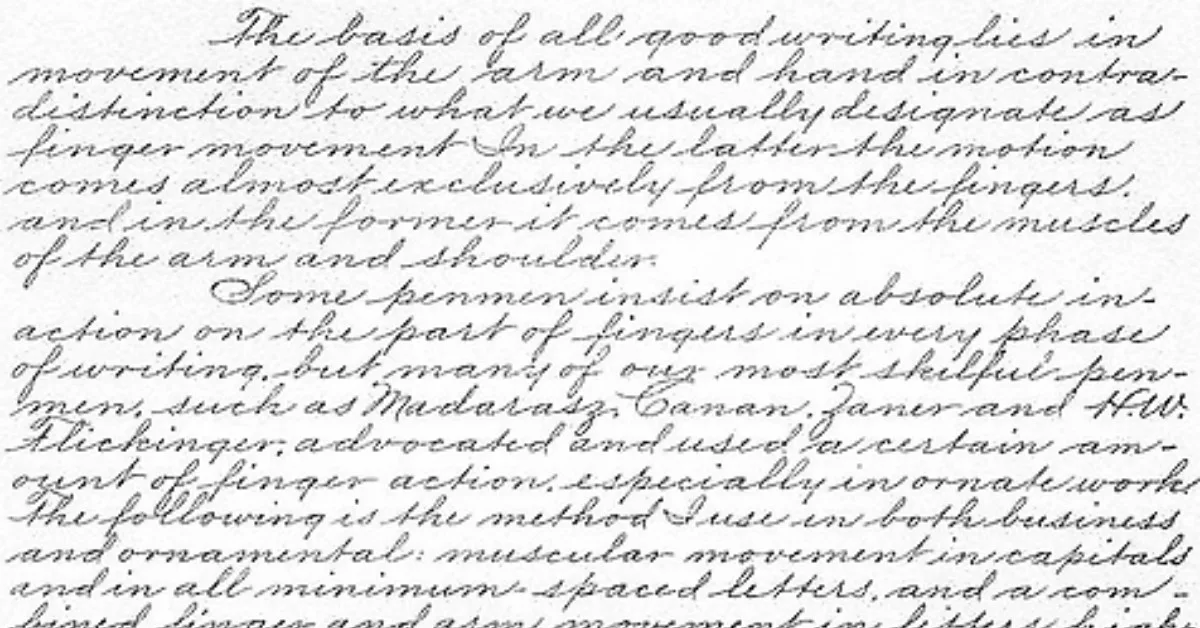 The basis of all good writing lies in
movement of the arm and hand in contra-
distinction to what we usually designate as
finger movement In the latter the motion
comes almost exclusively from the fingers,
and in the former it comes from the muscles
of the arm and shoulder.
Some penmen insist on absolute in-
action on the part of fingers in every phase
of writing, but many of our most skilful pen-
men, such as Madarasz, Canan, Zaner and H.W.
Flickinger, advocated and used a certain am-
ount of finger action, especially in ornate work
The following is the method I use in both business
and ornamental: muscular movement in capitals
and in all minimum-spaced letters, and a com-
bined finger and arm movement in letters